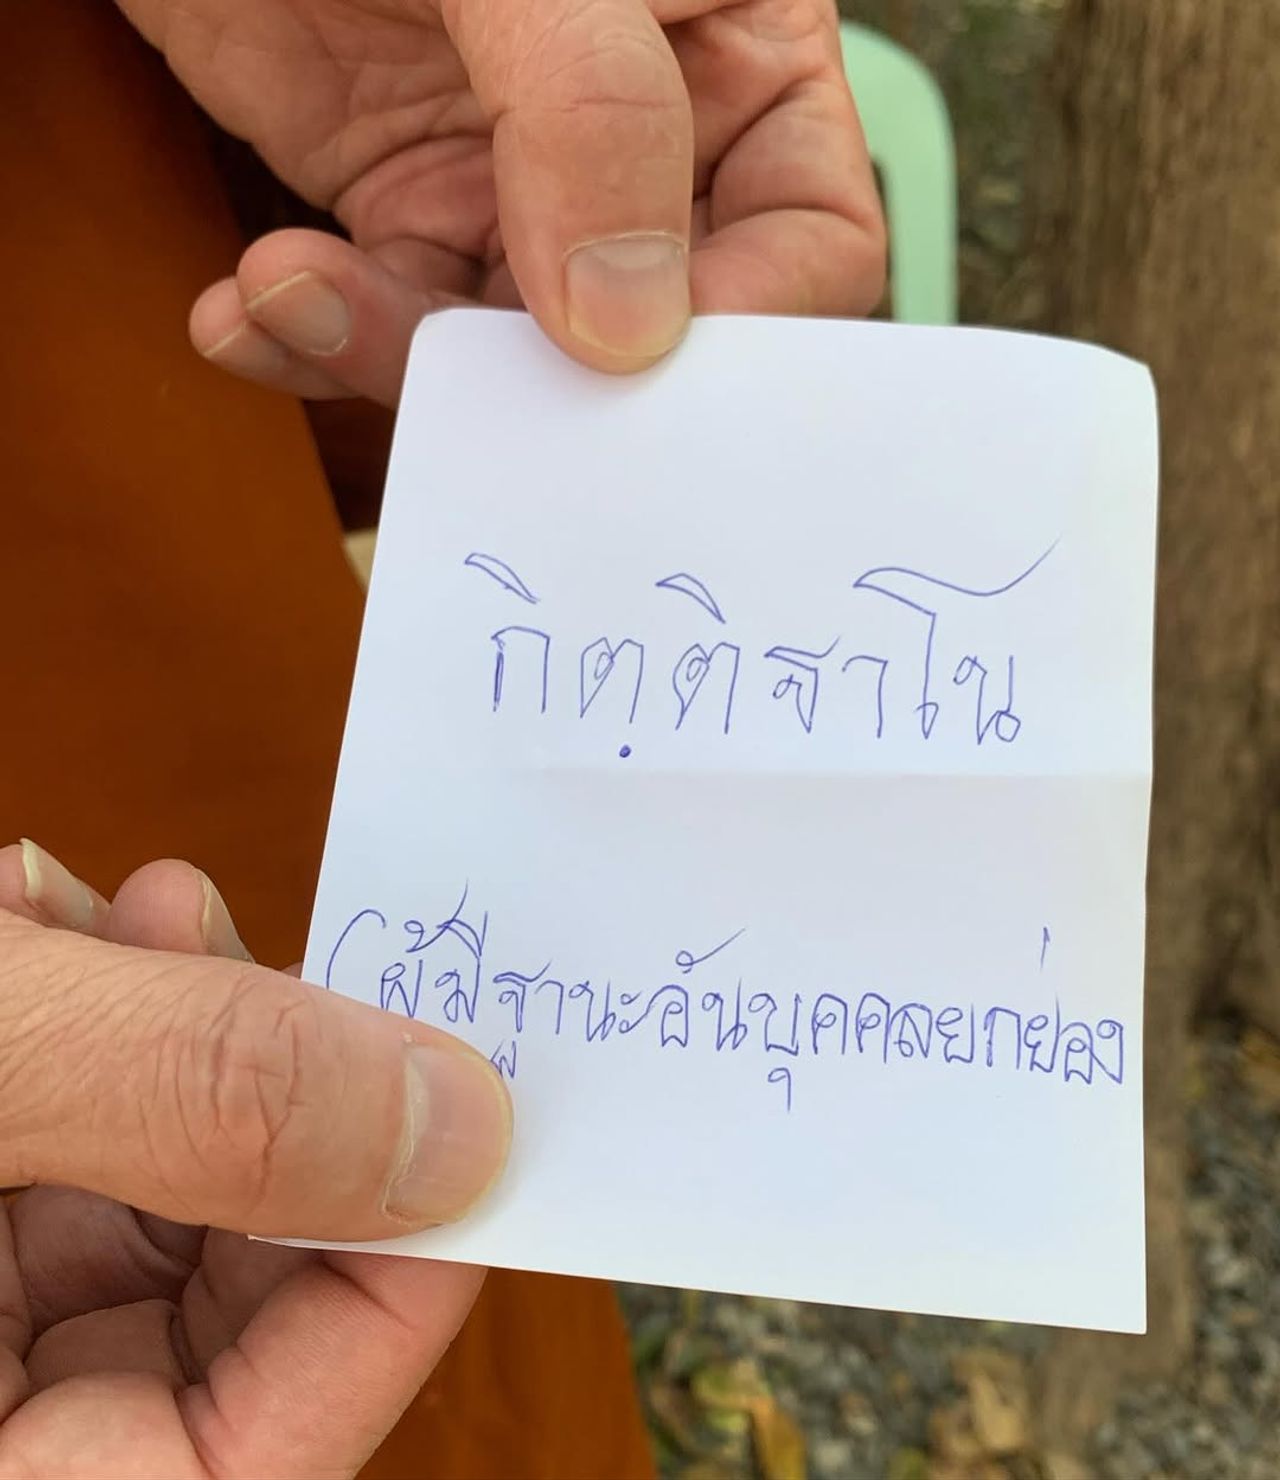 กิตฺติฐาโน
(ผู้มีฐานะอันบุคคลยกย่อง